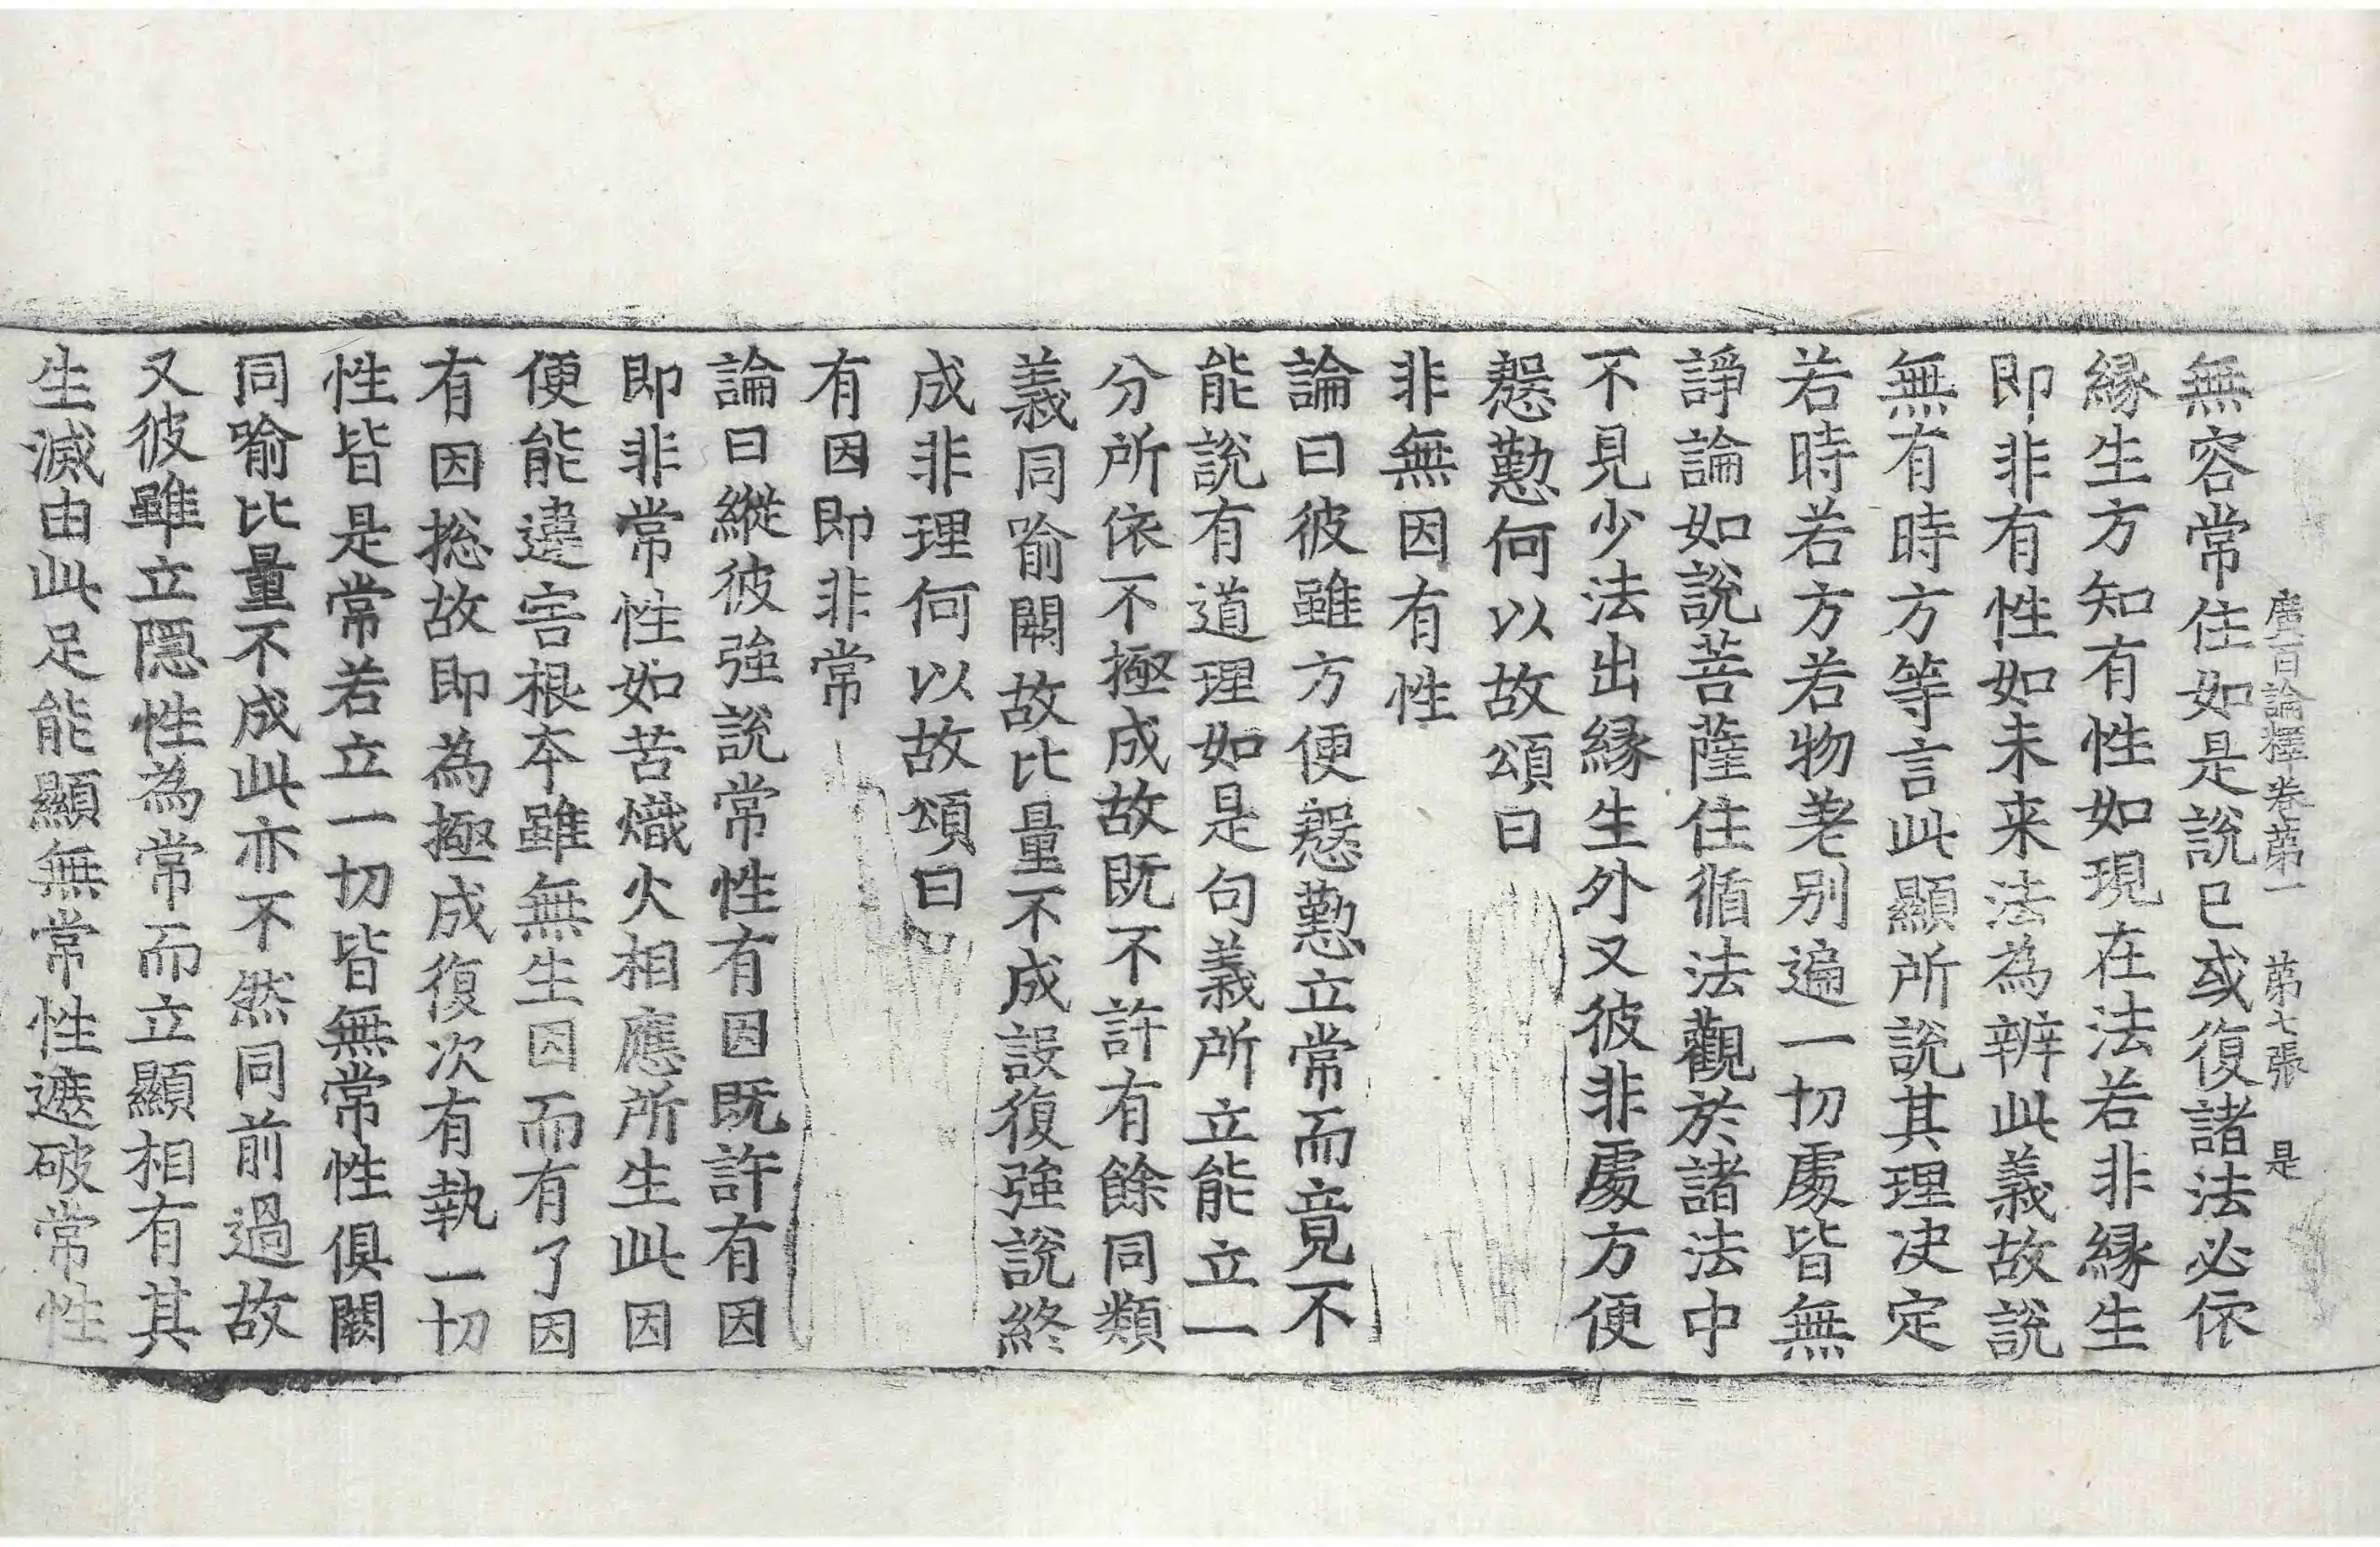 廣百論釋卷第一　第七張　是
無容常住如是說已或復諸法必依
縁生方知有性如現在法若非縁生
即非有性如未来法為辨此義故說
無有時方等言此顯所說其理决定
若時若方若物差别遍一切處皆無
諍論如說菩薩住循法觀於諸法中
不見少法出縁生外又彼非處方便
慇懃何以故頌曰
非無因有性
論曰彼雖方便慇懃立常而竟不
能說有道理如是句義所立能立一
分所依不極成故既不許有餘同類
義同喻闕故比量不成設復強說終
成非理何以故頌曰
有因即非常
論曰縱彼強說常性有因既許有因
即非常性如苦熾火相應所生此因
便能違害根本雖無生因而有了因
有因揔故即為極成復次有執一切
性皆是常若立一切皆無常性俱闕
同喻比量不成此亦不然同前過故
又彼雖立隱性為常而立顯相有其
生滅由此足能顯無常性遮破常性